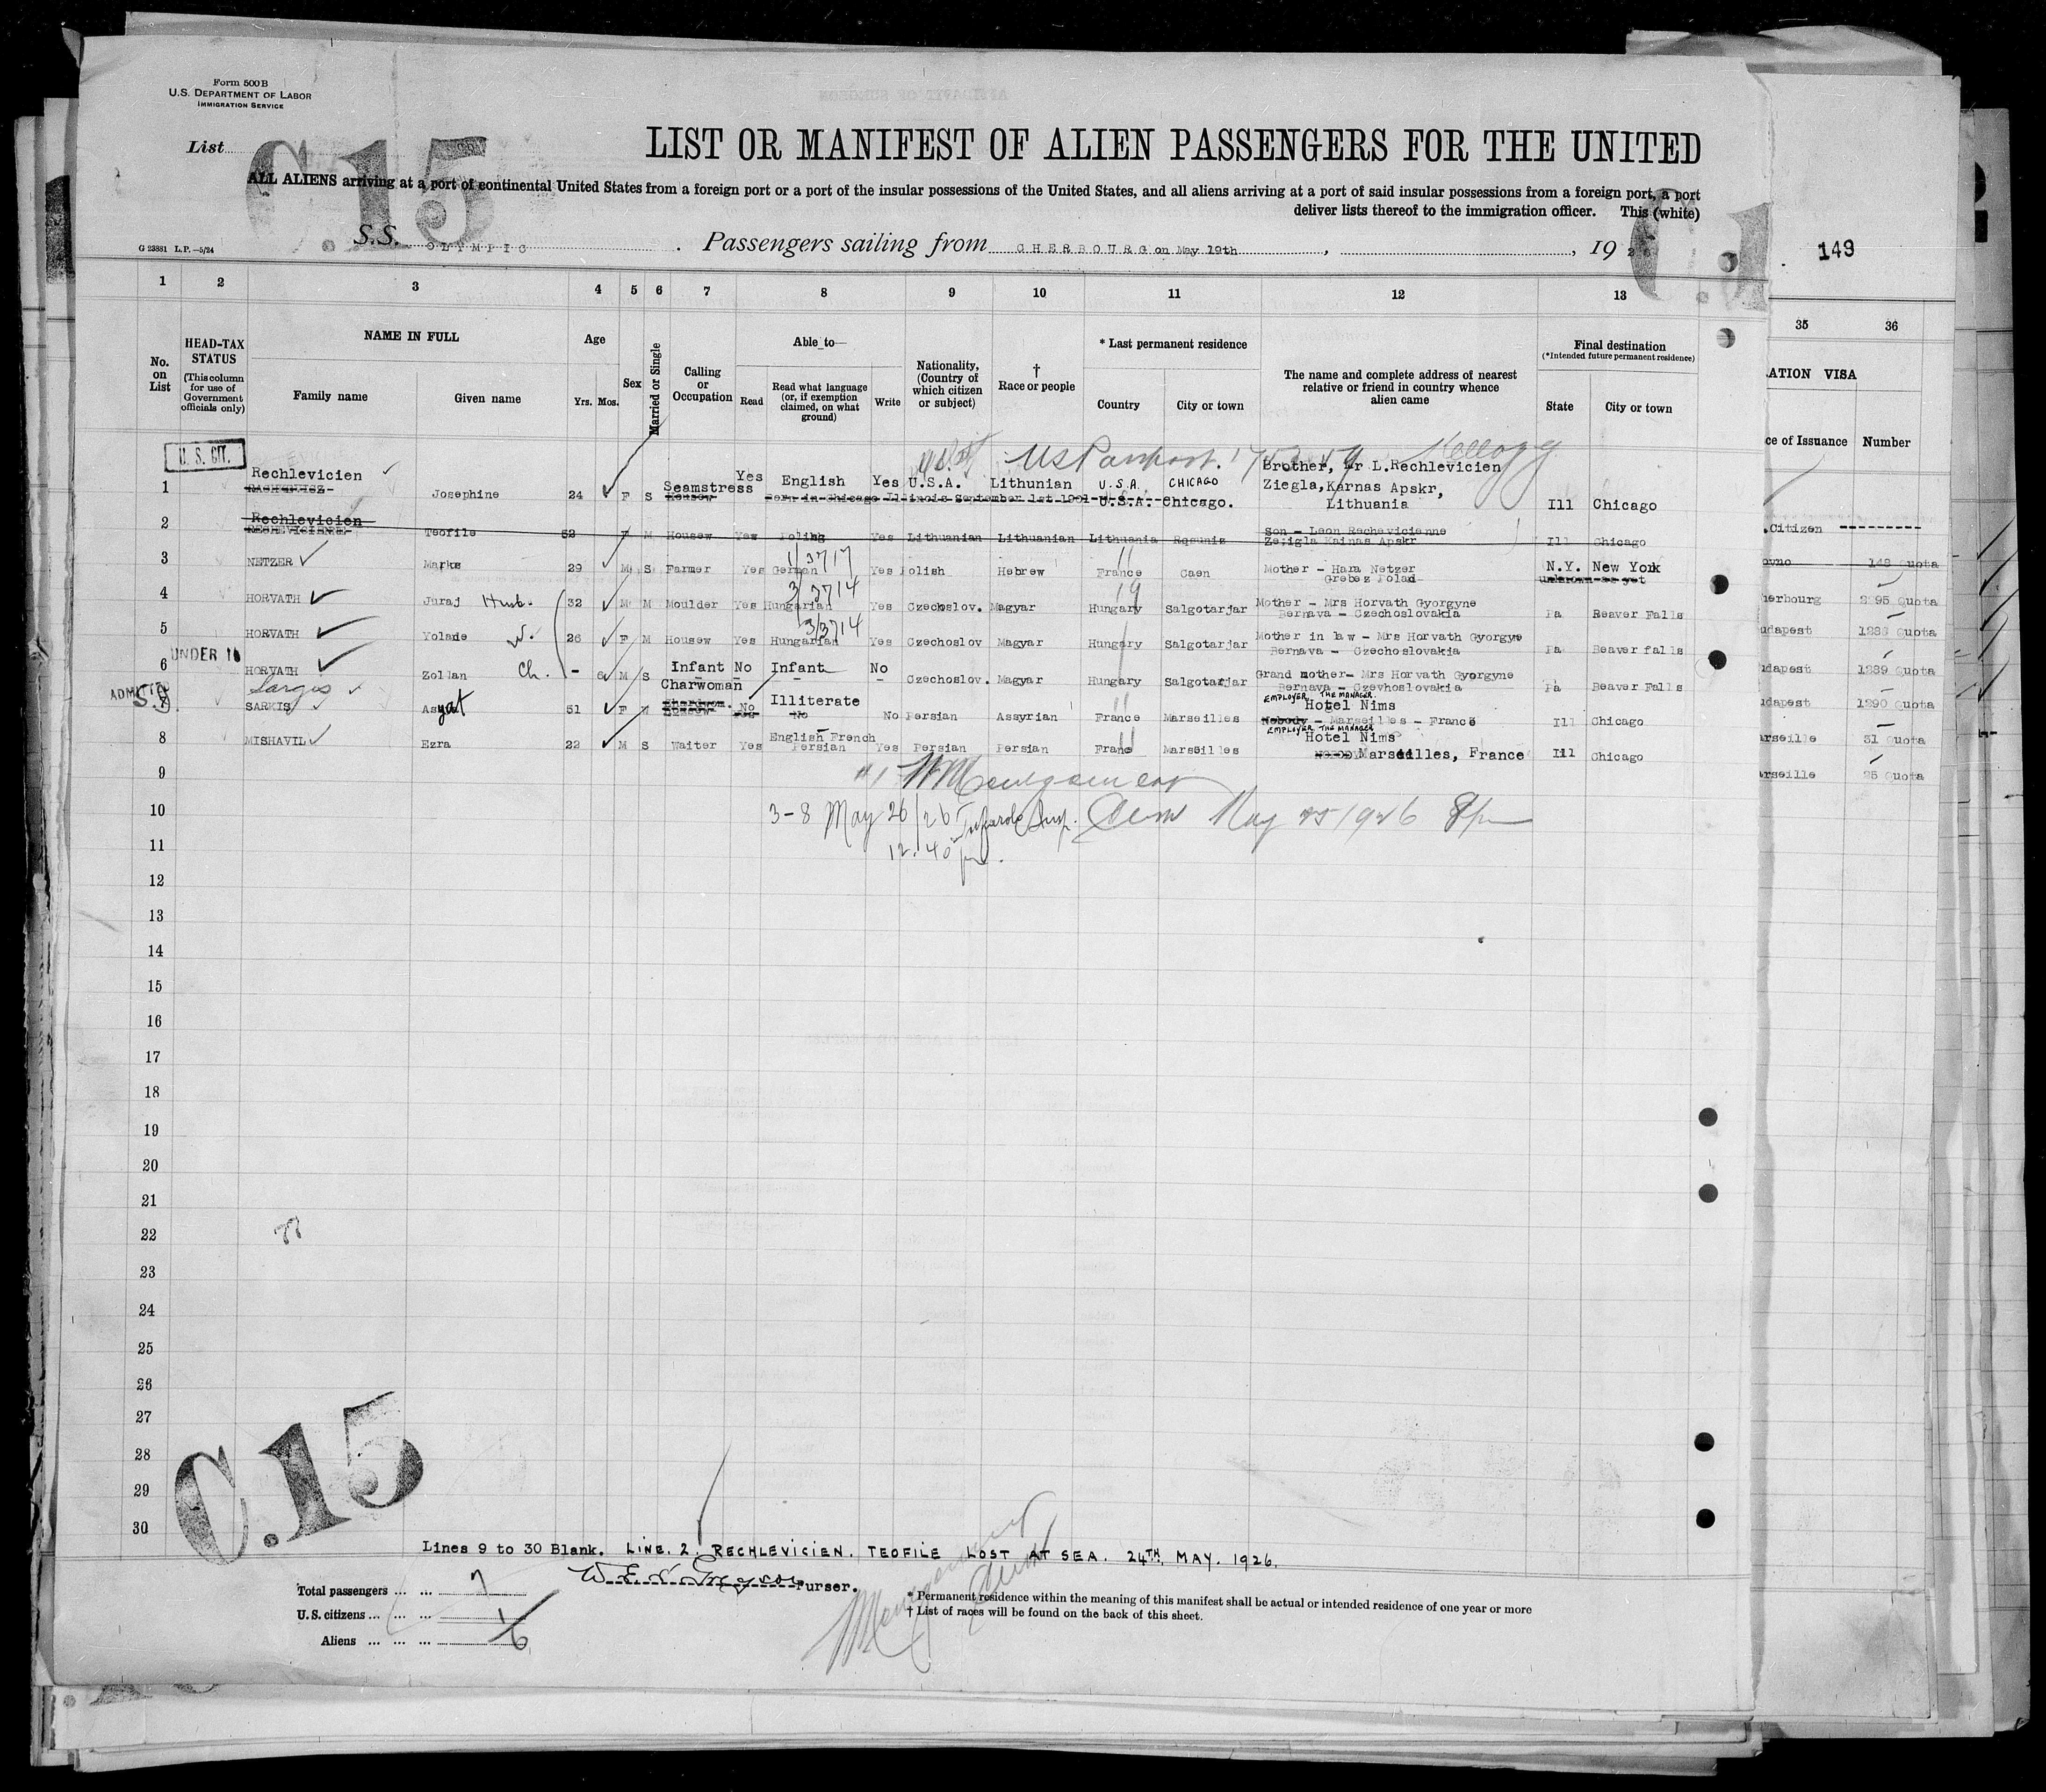 Form 500 B
U.S. DEPARTMENT OF LABOR
IMMIGRATION SERVICE
List
C.15
LIST OR MANIFEST OF ALIEN PASSENGERS FOR THE UNITED
ALL ALIENS arriving at a port of continental United States from a foreign port or a port of the insular possessions of the United States, and all aliens arriving at a port of said insular possessions from a foreign port, a port
deliver lists thereof to the immigration officer. This (white)
G 23881 L.P.—5/24
S.S. OLYMPIC . Passengers sailing from CHERBOURG on May 19th, , 19 26
C.1
149
1 2 3 4 5 6 7 8 9 10 11 12 13 35 36
No. on List
HEAD-TAX STATUS
(This column for use of Government officials only)
NAME IN FULL
Family name Given name
Age
Yrs. Mos.
Sex
Married or Single
Calling or Occupation
Able to—
Read
Read what language (or, if exemption claimed, on what ground)
Write
Nationality, (Country of which citizen or subject)
† Race or people
* Last permanent residence
Country City or town
The name and complete address of nearest relative or friend in country whence alien came
Final destination
(*Intended future permanent residence)
State City or town
ATION VISA
ce of Issuance Number
U. S. CIT.
US Passport. Kellogg
1 Rechlevicien Josephine 24 F S Seamstress Housew Yes English Yes U.S.A. Lithunian U.S.A. CHICAGO Brother, Mr L.Rechlevicien
Born in Chicago Illinois September 1st 1901 U.S.A. Chicago. Ziegla, Karnas Apskr,
Lithuania Ill Chicago
2 Rechlevicien
RECHEVICIENNE Teofile 52 F M Housew Yes Polish Yes Lithuanian Lithuanian Lithuania Son - Leon Rechevicienne
Zezigla Kainas Apskr Ill Chicago
.Citizen ----------
3 NETZER Marks 29 M S Farmer Yes German Yes Polish Hebrew France Caen Mother - Hara Netzer
Grebez Polad N.Y. New York
unknown as yet
1/3717
ovno 148 Quota
4 HORVATH Juraj Husb. 32 M M Moulder Yes Hungarian Yes Czechoslov. Magyar Hungary Salgotarjar Mother - Mrs Horvath Gyorgyne
Bernava - Czechoslovakia Pa Beaver Falls
3/3714
herbourg 2295 Quota
5 HORVATH Yolade W. 26 F M Housew Yes Hungarian Yes Czechoslov Magyar Hungary Salgotarjar Mother in law - Mrs Horvath Gyorgyne
Bernava - Czechoslovakia Pa Beaver falls
3/3714
udapest 1288 Quota
UNDER 16
6 HORVATH Zoldan Ch. - 6 M S Infant No Infant No Czechoslov. Magyar Hungary Salgotarjar Grand mother- Mrs Horvath Gyorgyne
Bernava - Czevhoslovakia Pa Beaver Falls
udapest 1289 Quota
ADMITTED
S.I.
Sargis
7 SARKIS Asyat 51 F Charwoman No Illiterate No Persian Assyrian France Marseilles EMPLOYER THE MANAGER.
Hotel Nims
Nobody - Marseilles - France Ill Chicago
udapest 1290 Quota
8 MISHAVIL Ezra 22 M S Waiter Yes English French
Persian Yes Persian Persian Franc Marseilles EMPLOYER THE MANAGER
Hotel Nims
NOBODY Marseilles, France Ill Chicago
arseille 31 Quota
arseille 25 Quota
9
#1 Montgomery
10
3-8 May 26/26 Insp. May 25 1926 8 pm
11
12.40 pm.
12
13
14
15
16
17
18
19
20
21
22
23
24
25
26
27
28
29
30
C.15
Lines 9 to 30 Blank. LINE. 2. RECHLEVICIEN. TEOFILE LOST AT SEA. 24TH. MAY. 1926.
Purser.
Total passengers ... ... 7
U.S. citizens ... ... ... 1
Aliens ... ... ... 6
* Permanent residence within the meaning of this manifest shall be actual or intended residence of one year or more
† List of races will be found on the back of this sheet.